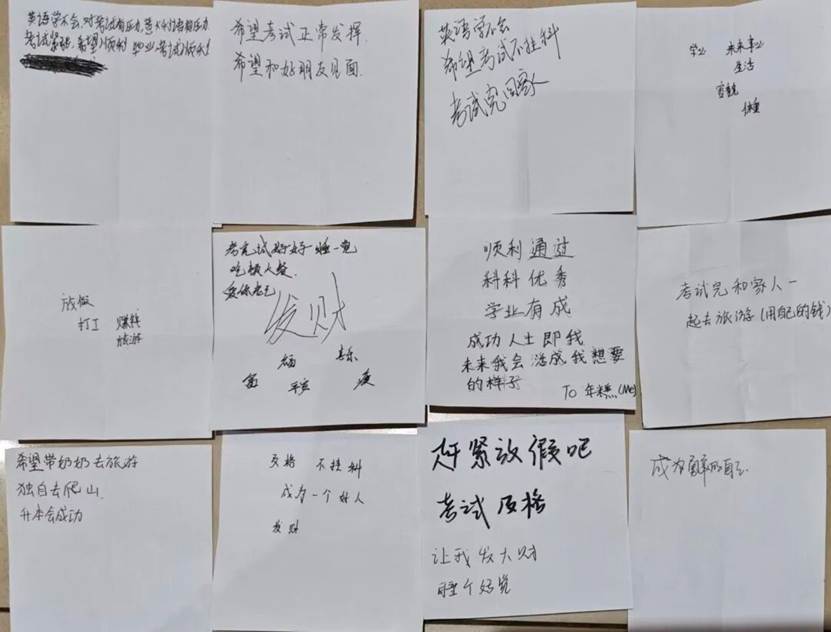 英语学不会,对考试有压力,
考试紧张,希望顺利 毕业考试顺利
希望考试正常发挥
希望和好朋友见面
英语学不会
希望考试不挂科
考试完回家
学业 未来事业
生活
健康
放假
打工 赚钱
旅游
考完试好好睡一觉
吃顿火锅
发财
平安
顺利通过
科科优秀
学业有成
成功人士即我
未来我会活成我想要
的样子
To 年糕(Me)
考试完和家人一
起去旅游(用自己的钱)
希望带奶奶去旅游
独自去爬山
升本会成功
及格 不挂科
成为一个好人
发财
赶紧放假吧
考试及格
让我发大财
睡个好觉
成为